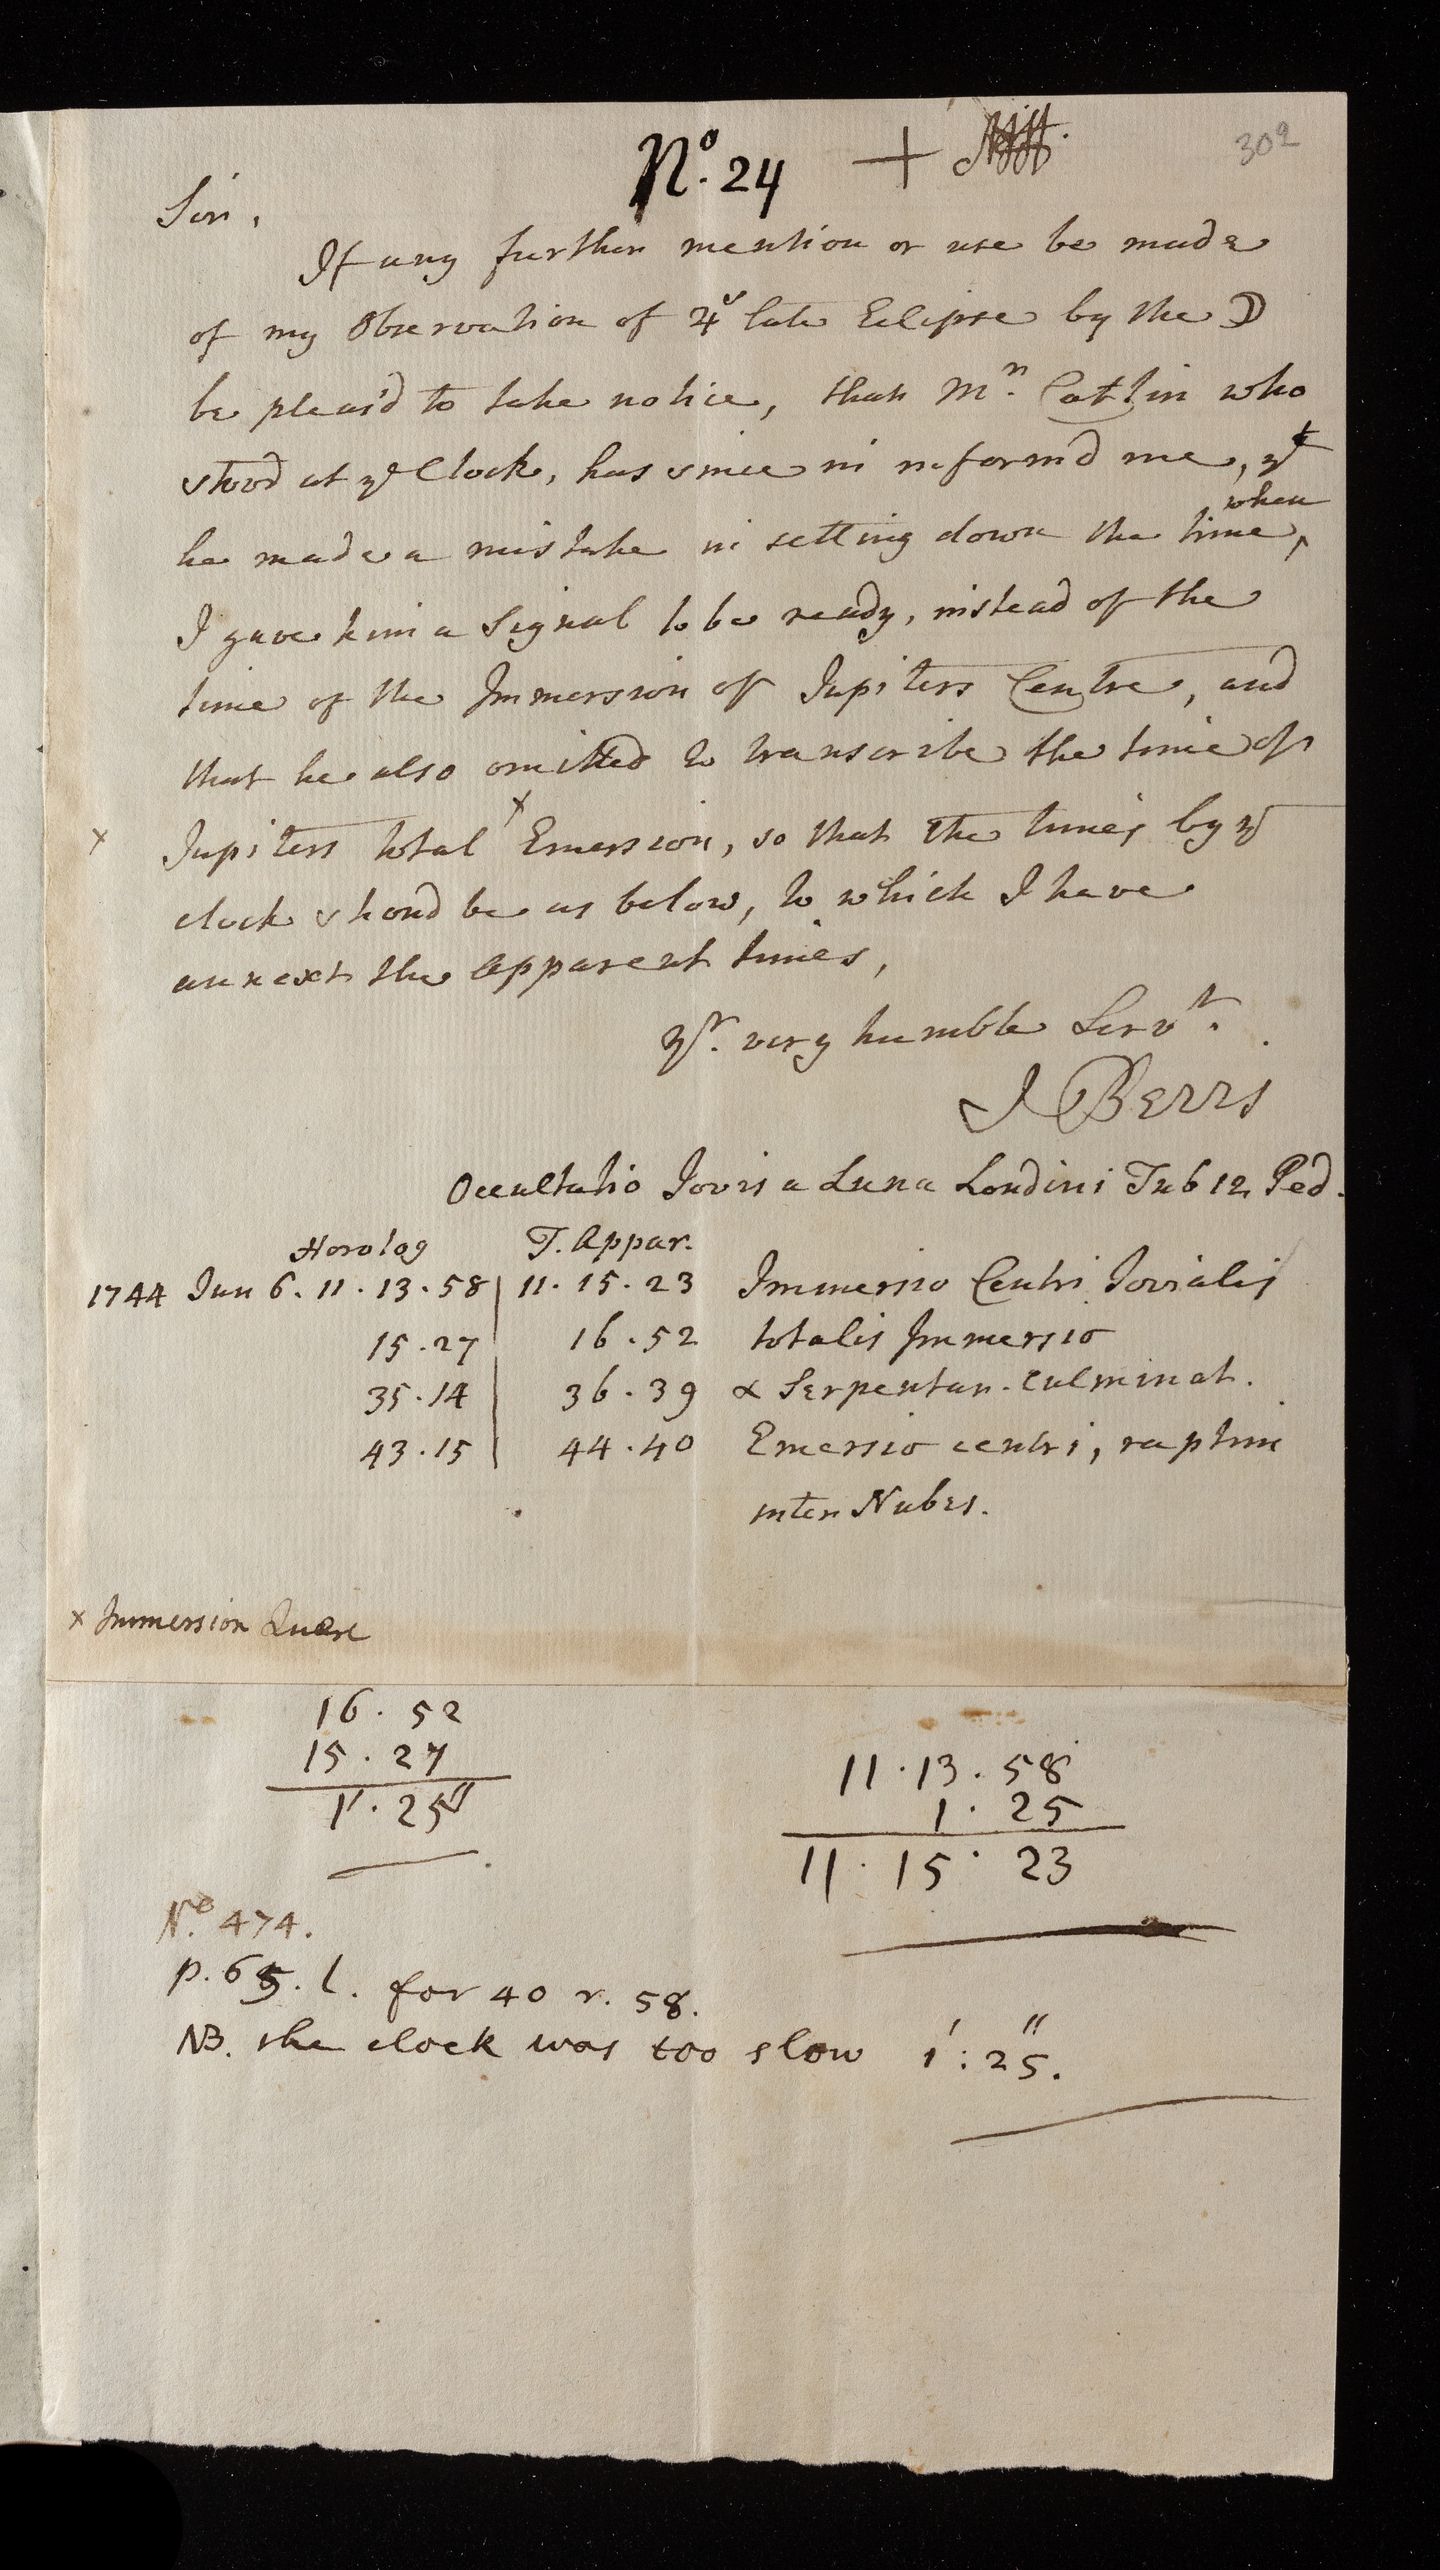 No. 24 +
302
Sir,
If any further mention or use be made
of my Observation of ♃s late Eclipse by the ☽
be pleas'd to take notice, that Mr. Catlin who
stood at ye Clock, has since in inform'd me, yt
when
he made a mistake in setting down the time,
I gave him a Signal to be ready, instead of the
time of the Immersion of Jupiters Centre, and
that he also omitted to transcribe the time of
x Jupiters total x Emersion, so that the times by ye
clock shoud be as below, to which I have
annext the Apparent times,
yr. very humble Servt.
J Bevis
Occultatio Jovis a Luna Londini Tub 12 Ped.
Horolog T. Appar.
1744 Jun 6. 11. 13. 58 | 11. 15. 23 Immersio Centri Jovialis
15. 27 16. 52 totalis Immersio
35. 14 36. 39 α Serpentar. culminat.
43. 15 44. 40 Emersio centri, raptim
inter Nubes.
x Immersion Quære
16. 52
15. 27
1'. 25"
11. 13. 58
1. 25
11. 15. 23
No. 474.
p. 65. l. for 40 r. 58.
NB. the clock was too slow 1' : 25".